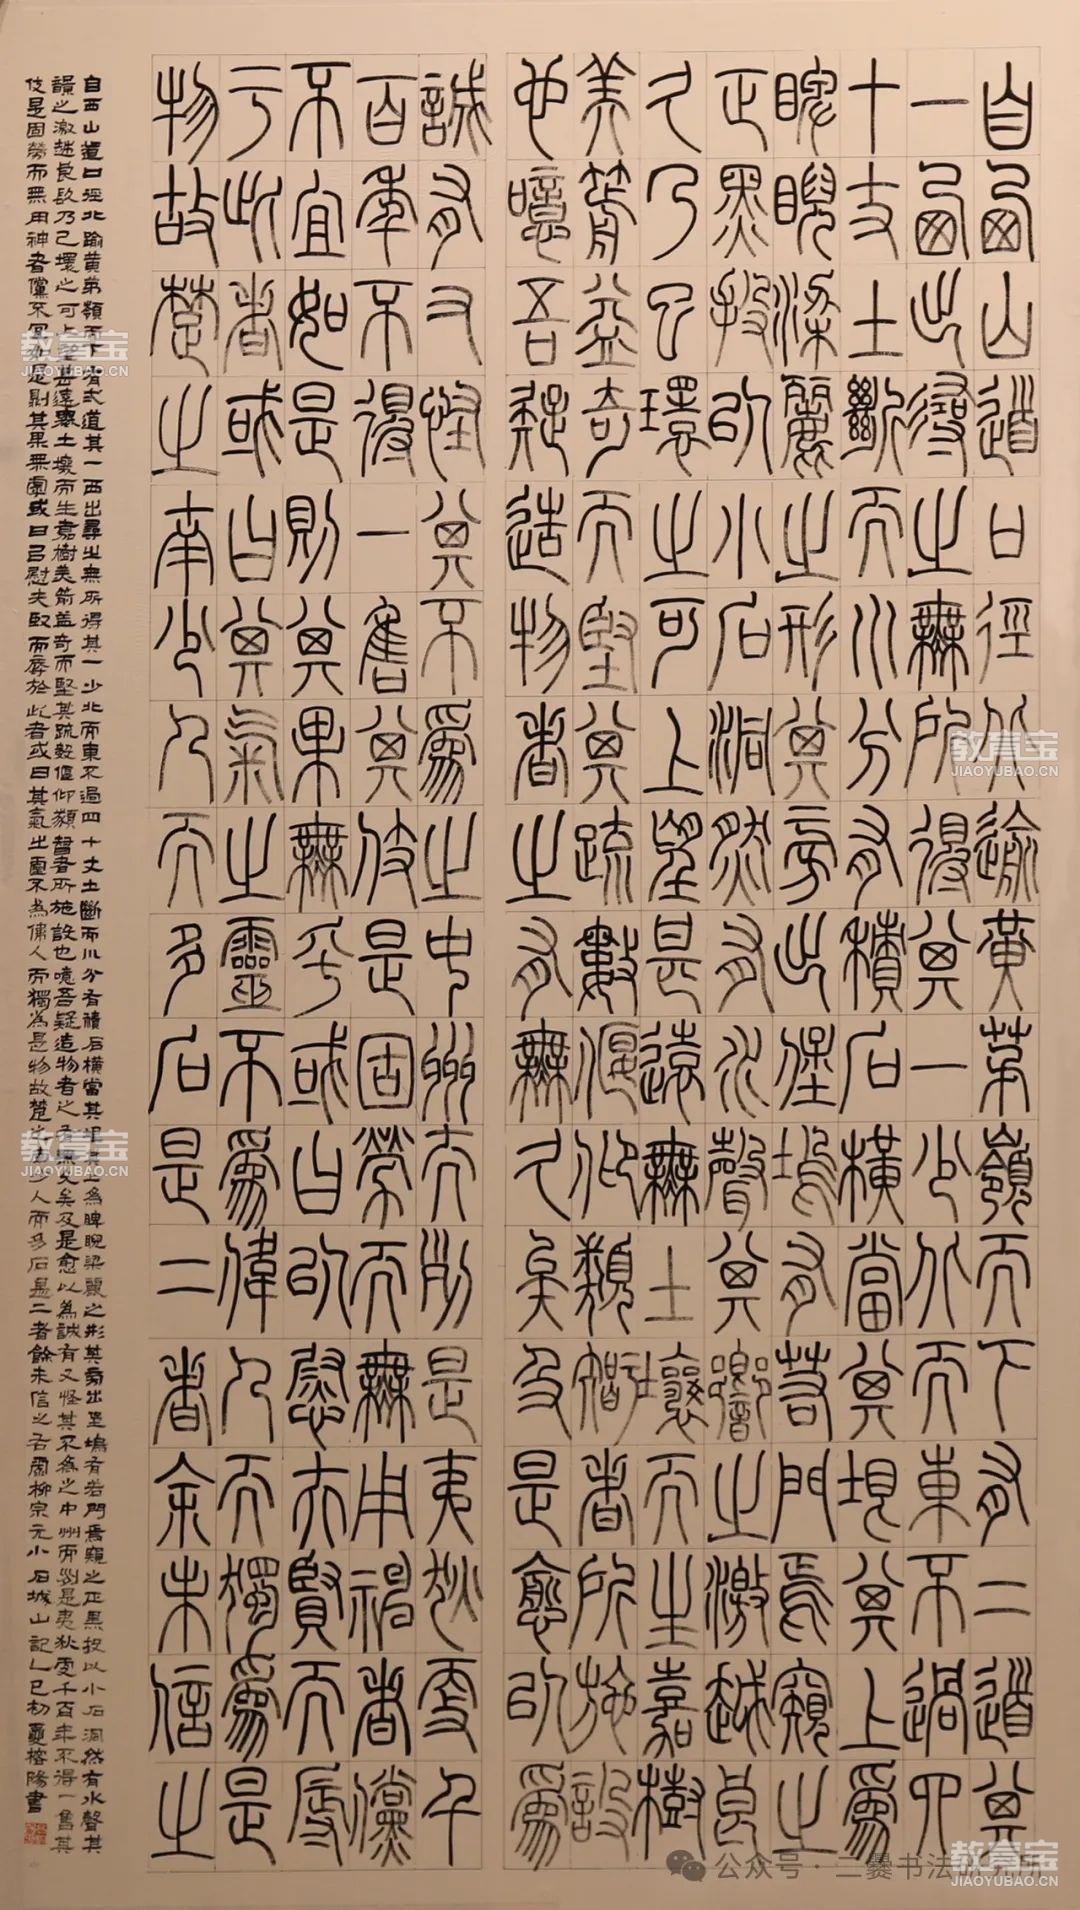 自西山道口徑北踰黃茅嶺而下有二道其
一西出尋之無所得其一少北而東不過四
十丈土斷而川分有積石橫當其垠其上為
睥睨梁麗之形其旁出堡塢有若門焉窺之
正黑投以小石洞然有水聲其響之激越良
久乃已環之可上望甚遠無土壤而生嘉樹
美箭益奇而堅其疏數偃仰類智者所施設
也噫吾疑造物者之有無久矣及是愈以為
誠有又怪其不為之中州而列是夷狄更千
百年不得一售其伎是固勞而無用神者儻
不宜如是則其果無乎或曰以慰夫賢而辱
於此者或曰其氣之靈不為偉人而獨為是
物故楚之南少人而多石是二者余未信之
自西山道口徑北踰黃茅嶺而下有弍道其一西出尋之無所得其一少北而東不過四十丈土斷而川分有積石橫當其垠其上為睥睨梁麗之形其旁出堡塢有若門焉窺之正黑投以小石洞然有水聲其
響之激越良久乃已環之可上望甚遠無土壤而生嘉樹美箭益奇而堅其疏數偃仰類智者所施設也噫吾疑造物者之有無久矣及是愈以為誠有又怪其不為之中州而列是夷狄更千百年不得一售其
伎是固勞而無用神者儻不宜如是則其果無乎或曰以慰夫賢而辱於此者或曰其氣之靈不為偉人而獨為是物故楚之南少人而多石是二者餘未信之右柳宗元小石城山記乙巳初夏榕陽書
教育宝
JIAOYUBAO.CN
教育宝
JIAOYUBAO.CN
教育宝
JIAOYUBAO.CN
教育宝
JIAOYUBAO.CN
公众号·二爨书法研究所